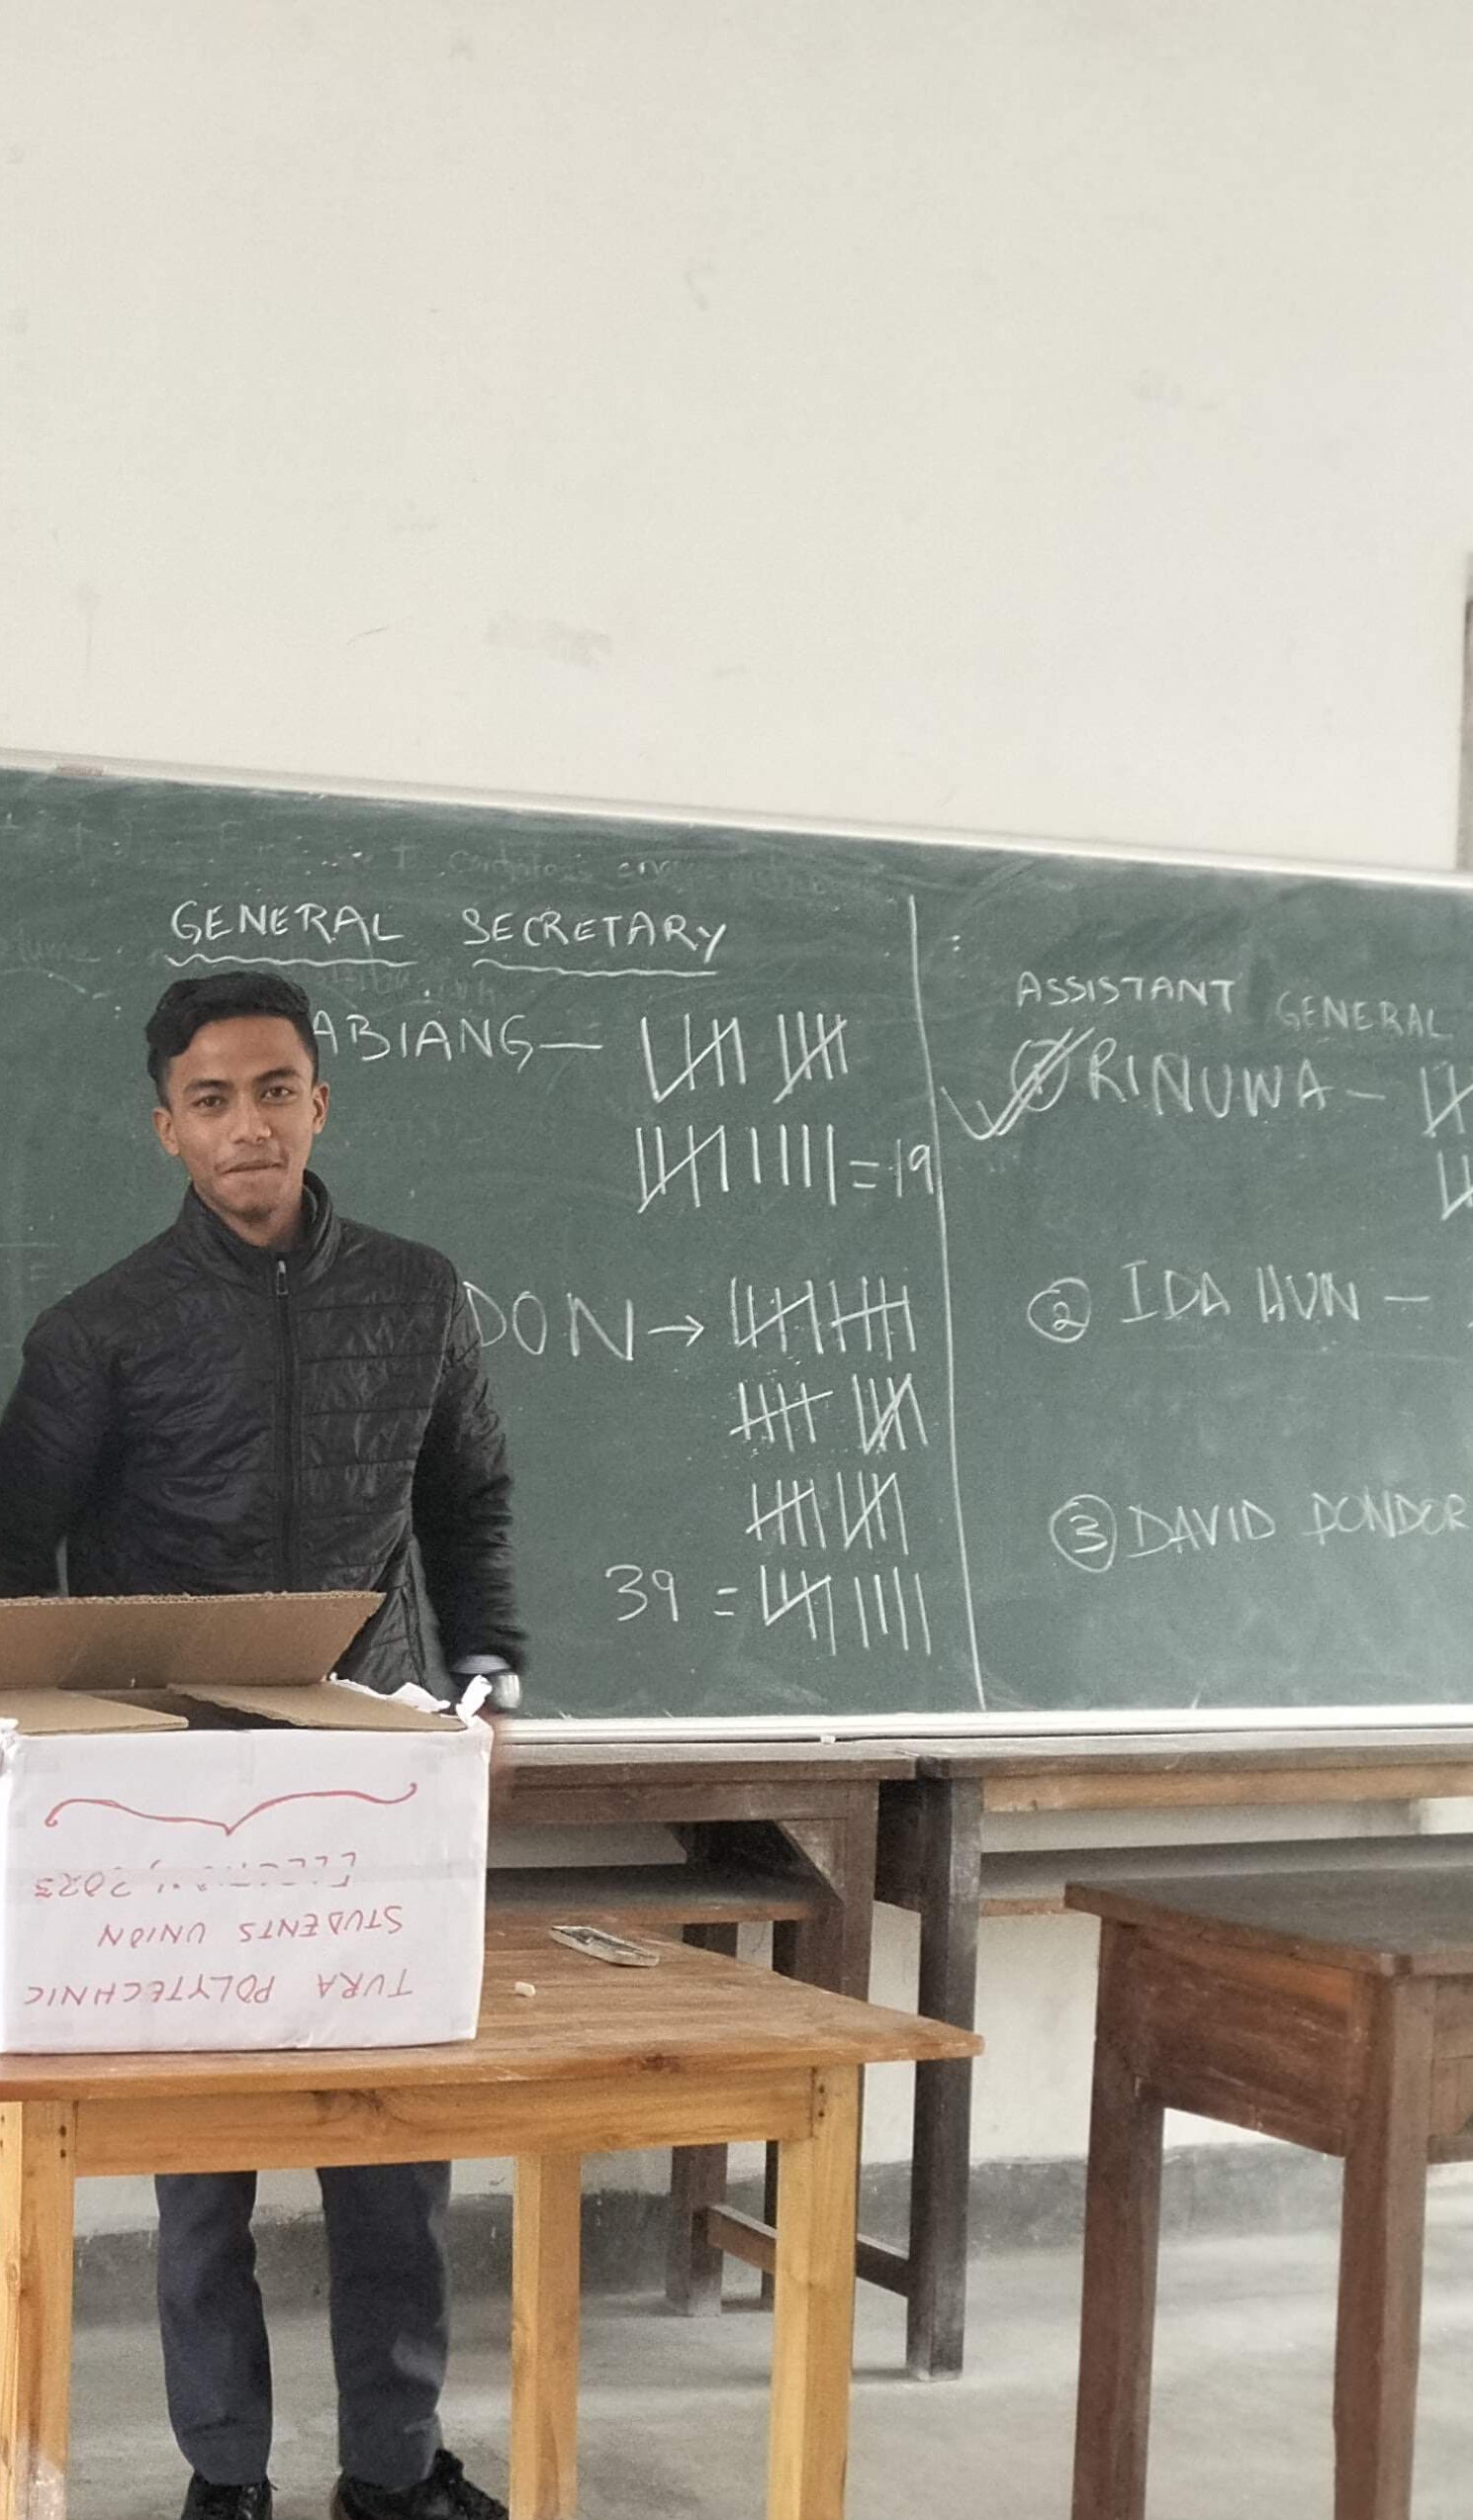 GENERAL SECRETARY
ABIANG —
= 19
DON →
39 =
ASSISTANT GENERAL
① RINUWA —
② IDA HUN —
③ DAVID DONDOR
TURA POLYTECHNIC
STUDENTS UNION
2023